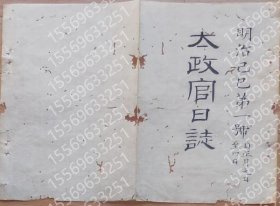 明治己巳第一號
太政官日誌
15569633251
15569633251
15569633251
15569633251
15569633251
15569633251